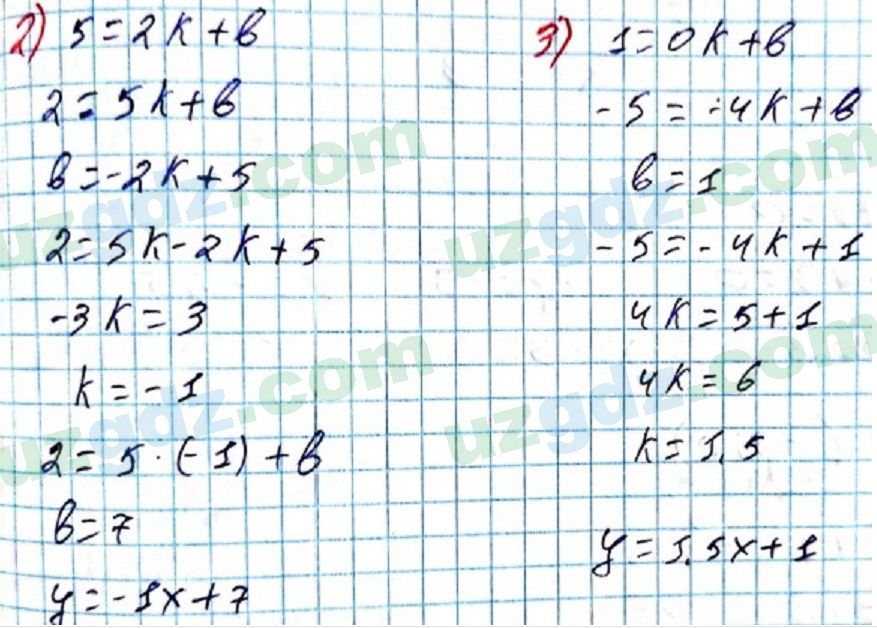 2) 5 = 2k + b
2 = 5k + b
b = -2k + 5
2 = 5k - 2k + 5
-3k = 3
k = -1
2 = 5 · (-1) + b
b = 7
y = -1x + 7
3) 1 = 0k + b
-5 = -4k + b
b = 1
-5 = -4k + 1
4k = 5 + 1
4k = 6
k = 1.5
y = 1.5x + 1
uzgdz.com
uzgdz.com
uzgdz.com
uzgdz.com